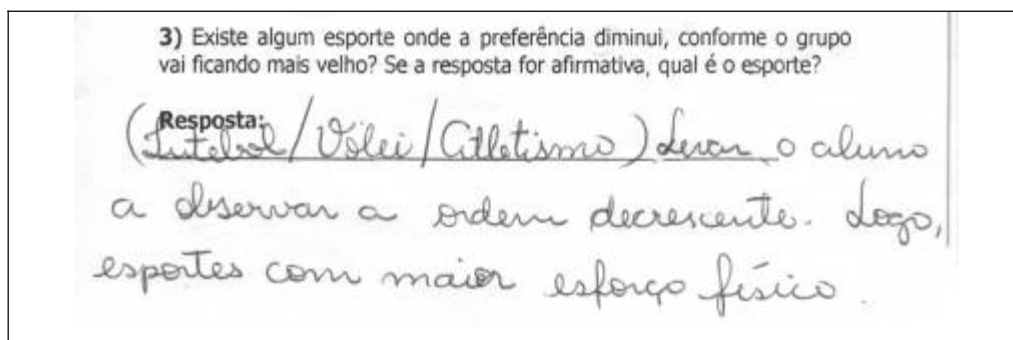 3) Existe algum esporte onde a preferência diminui, conforme o grupo
vai ficando mais velho? Se a resposta for afirmativa, qual é o esporte?
Resposta:
(Futebol/Vôlei/Atletismo) Levar o aluno
a observar a ordem decrescente. Logo,
esportes com maior esforço físico.